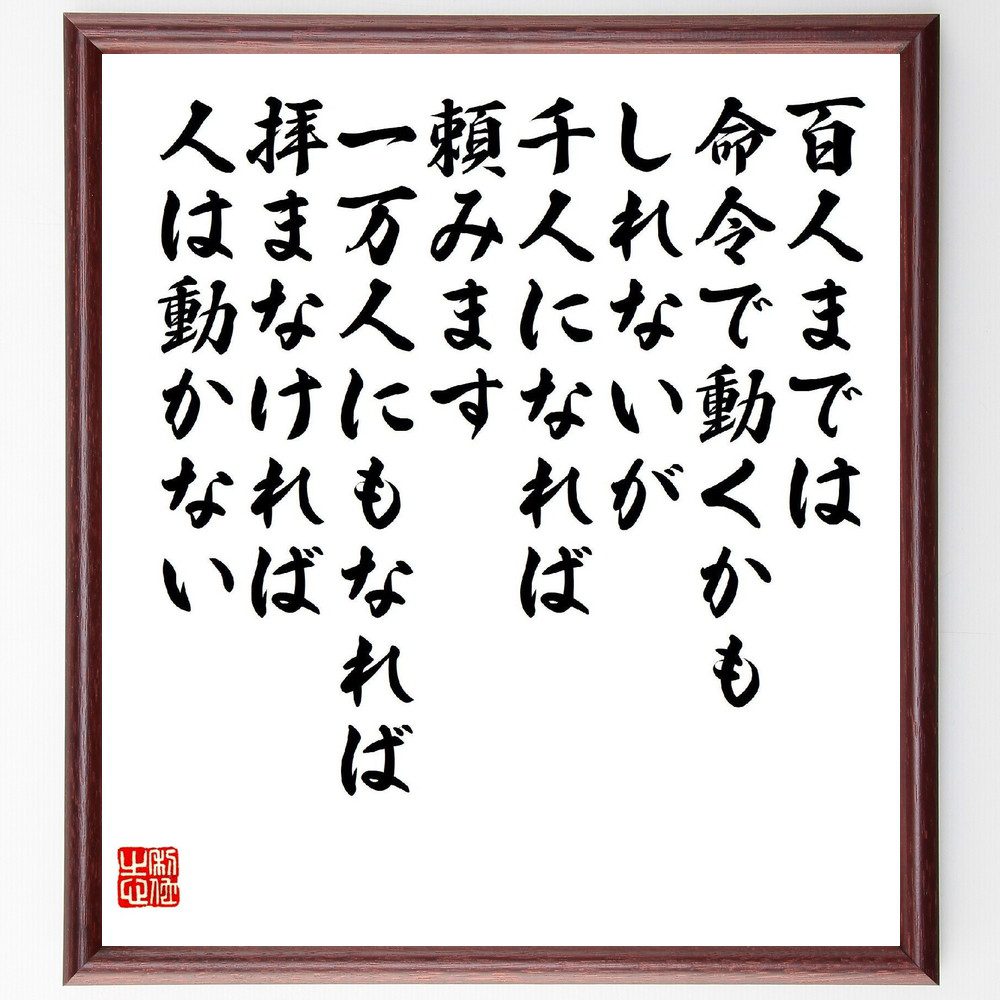 百人までは
命令で動くかも
しれないが
千人になれば
頼みます
一万人にもなれば
拝まなければ
人は動かない